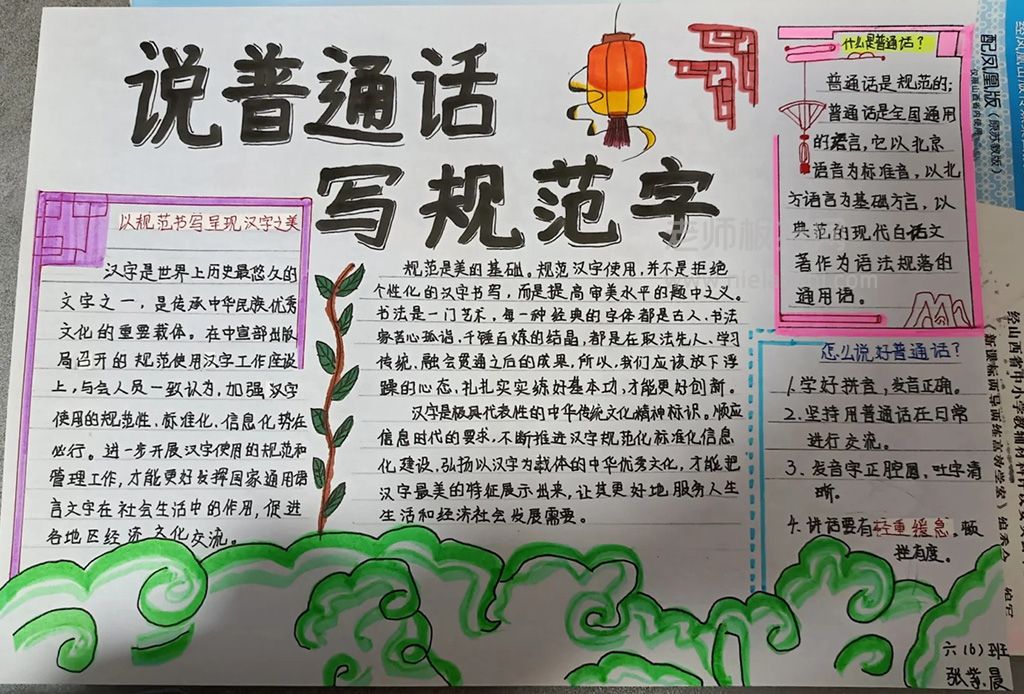 说普通话
写规范字
以规范书写呈现汉字之美
汉字是世界上历史最悠久的
文字之一，是传承中华民族优秀
文化的重要载体。在中宣部出版
局召开的规范使用汉字工作座谈
上，与会人员一致认为，加强汉字
使用的规范性、标准化、信息化势在
必行。进一步开展汉字使用的规范和
管理工作，才能更好发挥国家通用语
言文字在社会生活中的作用，促进
各地区经济、文化交流。
规范是美的基础。规范汉字使用，并不是拒绝
个性化的汉字书写，而是提高审美水平的题中之义。
书法是一门艺术，每一种经典的字体都是古人、书法
家苦心孤诣，千锤百炼的结晶，都是在取法先人、学习
传统，融会贯通之后的成果，所以，我们应该放下浮
躁的心态，扎扎实实练好基本功，才能更好创新。
汉字是极具代表性的中华传统文化精神标识。顺应
信息时代的要求，不断推进汉字规范化标准化信息
化建设，弘扬以汉字为载体的中华优秀文化，才能把
汉字最美的特征展示出来，让其更好地服务人生
生活和经济社会发展需要。
什么是普通话？
普通话是规范的；
普通话是全国通用
的语言，它以北京
语音为标准音，以北
方语言为基础方言，以
典范的现代白话文
著作为语法规范的
通用语。
怎么说好普通话？
1.学好拼音，发音正确。
2.坚持用普通话在日常
进行交流。
3、发音字正腔圆，吐字清
晰。
4.讲话要有轻重缓急。顿
挫有度。
六（6）班
配凤凰版（原苏教版）
仅限山西省内使用